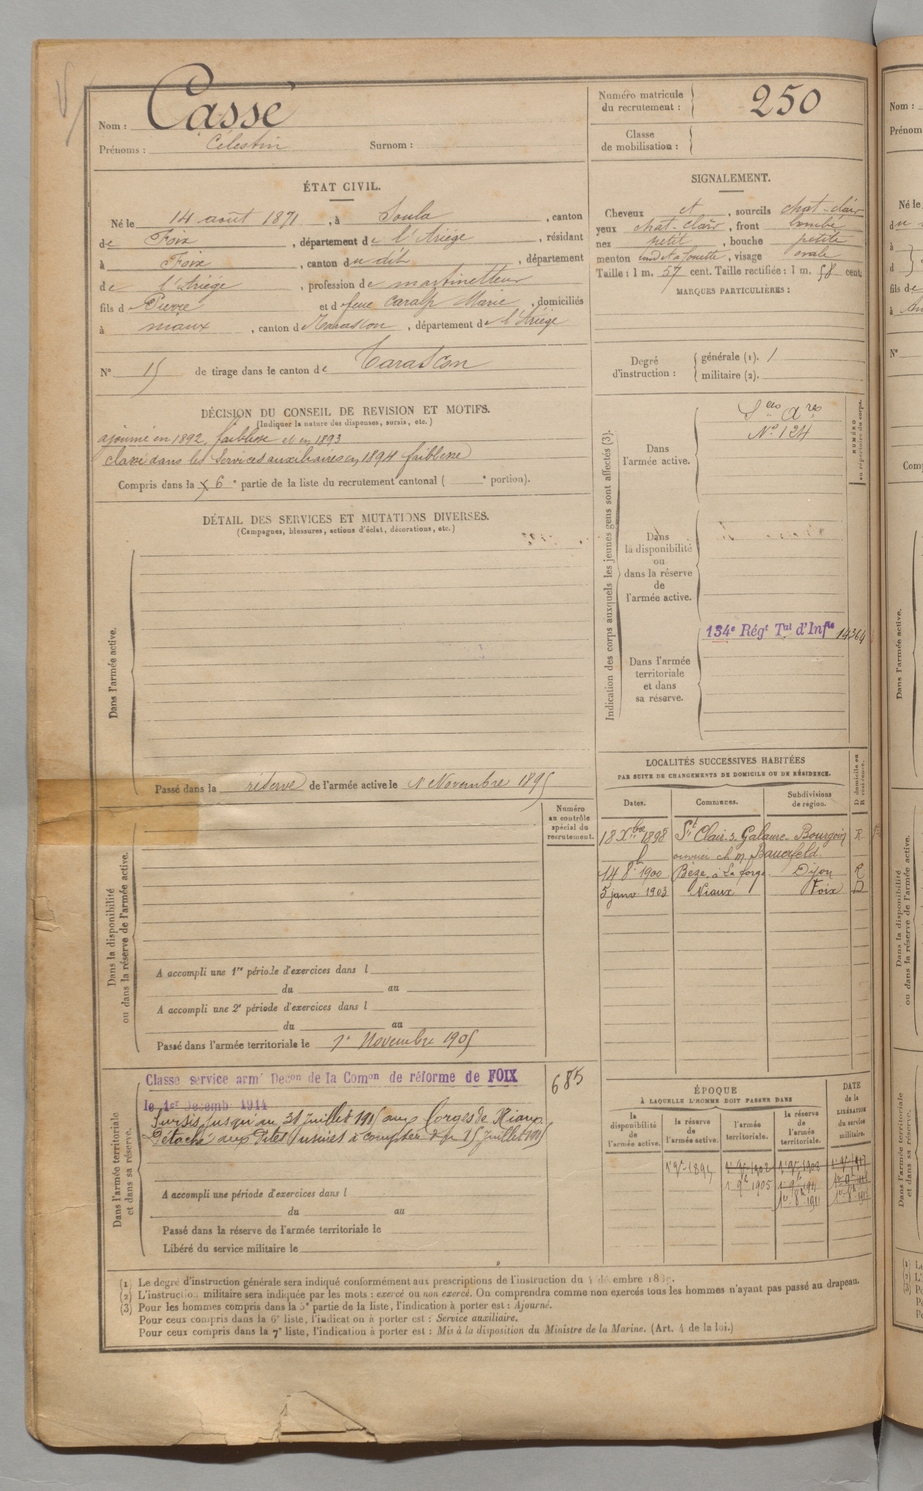 Nom : Cassé
Prénoms : Célestin Surnom :
Numéro matricule
du recrutement : 250
Classe
de mobilisation :
ÉTAT CIVIL.
Né le 14 août 1871, à Soula, canton
de Foix, département de l'Ariége, résidant
à Foix, canton du dit, département
de l'Ariége, profession de martinetteur
fils d Pierre et d feue Marie, domiciliés
à niaux, canton de Tarascon, département de l'Ariége
N° 15 de tirage dans le canton de Tarascon
SIGNALEMENT.
Cheveux et, sourcils chat-clair
yeux chat-clair, front bombé
nez petit, bouche petite
menton, visage ovale
Taille : 1 m. 57 cent. Taille rectifiée : 1 m. 58 cent.
MARQUES PARTICULIÈRES :
Degré
d'instruction : générale (1). 1
militaire (2).
DÉCISION DU CONSEIL DE REVISION ET MOTIFS.
(Indiquer la nature des dispenses, sursis, etc.)
ajourné en 1892, faiblesse et en 1893
classé dans les Services auxiliaires en 1894 faiblesse
Compris dans la 6e partie de la liste du recrutement cantonal ( e portion).
DÉTAIL DES SERVICES ET MUTATIONS DIVERSES.
(Campagnes, blessures, actions d'éclat, décorations, etc.)
Dans l'armée active.
Passé dans la réserve de l'armée active le 1er Novembre 1895
Numéro
au contrôle
spécial du
recrutement.
Dans la disponibilité
ou dans la réserve de l'armée active.
A accompli une 1re période d'exercices dans l
du au
A accompli une 2e période d'exercices dans l
du au
Passé dans l'armée territoriale le 1er Novembre 1905
Dans l'armée territoriale
et dans sa réserve.
Classé service armé Decon de la Comon de réforme de FOIX 685
le 1er Decemb 1914
Sursis jusqu'au 31 juillet 1915 aux forges de Niaux
Détaché aux Usines à compter du 15 juillet 1915
A accompli une période d'exercices dans l
du au
Passé dans la réserve de l'armée territoriale le
Libéré du service militaire le
Indication des corps auxquels les jeunes gens sont affectés (3).
NUMÉRO
au répertoire du corps.
Dans
l'armée active.
Sces Ares
N° 124
Dans
la disponibilité
ou
dans la réserve
de
l'armée active.
Dans l'armée
territoriale
et dans
sa réserve.
134e Régt Tal d'Infie 14364
LOCALITÉS SUCCESSIVES HABITÉES
PAR SUITE DE CHANGEMENTS DE DOMICILE OU DE RÉSIDENCE.
Dates. Communes. Subdivisions
de région. D domicile ou
R résidence.
18 Xbre 1898 St Clair s. Galaure Bourgoin R
ouvrier ch M Bauerfeld
14 8bre 1900 Bèze à La forge Dijon R
5 janv 1903 Niaux Foix D
ÉPOQUE
À LAQUELLE L'HOMME DOIT PASSER DANS
la
disponibilité
de
l'armée active.
la réserve
de
l'armée active.
l'armée
territoriale.
la réserve
de
l'armée
territoriale.
DATE
de la
LIBÉRATION
du service
militaire.
(1) Le degré d'instruction générale sera indiqué conformément aux prescriptions de l'instruction du
(2) L'instruction militaire sera indiquée par les mots : exercé ou non exercé. On comprendra comme non exercés tous les hommes n'ayant pas passé au drapeau.
(3) Pour les hommes compris dans la 5e partie de la liste, l'indication à porter est : Ajourné.
Pour ceux compris dans la 6e liste, l'indication à porter est : Service auxiliaire.
Pour ceux compris dans la 7e liste, l'indication à porter est : Mis à la disposition du Ministre de la Marine. (Art. 4 de la loi.)